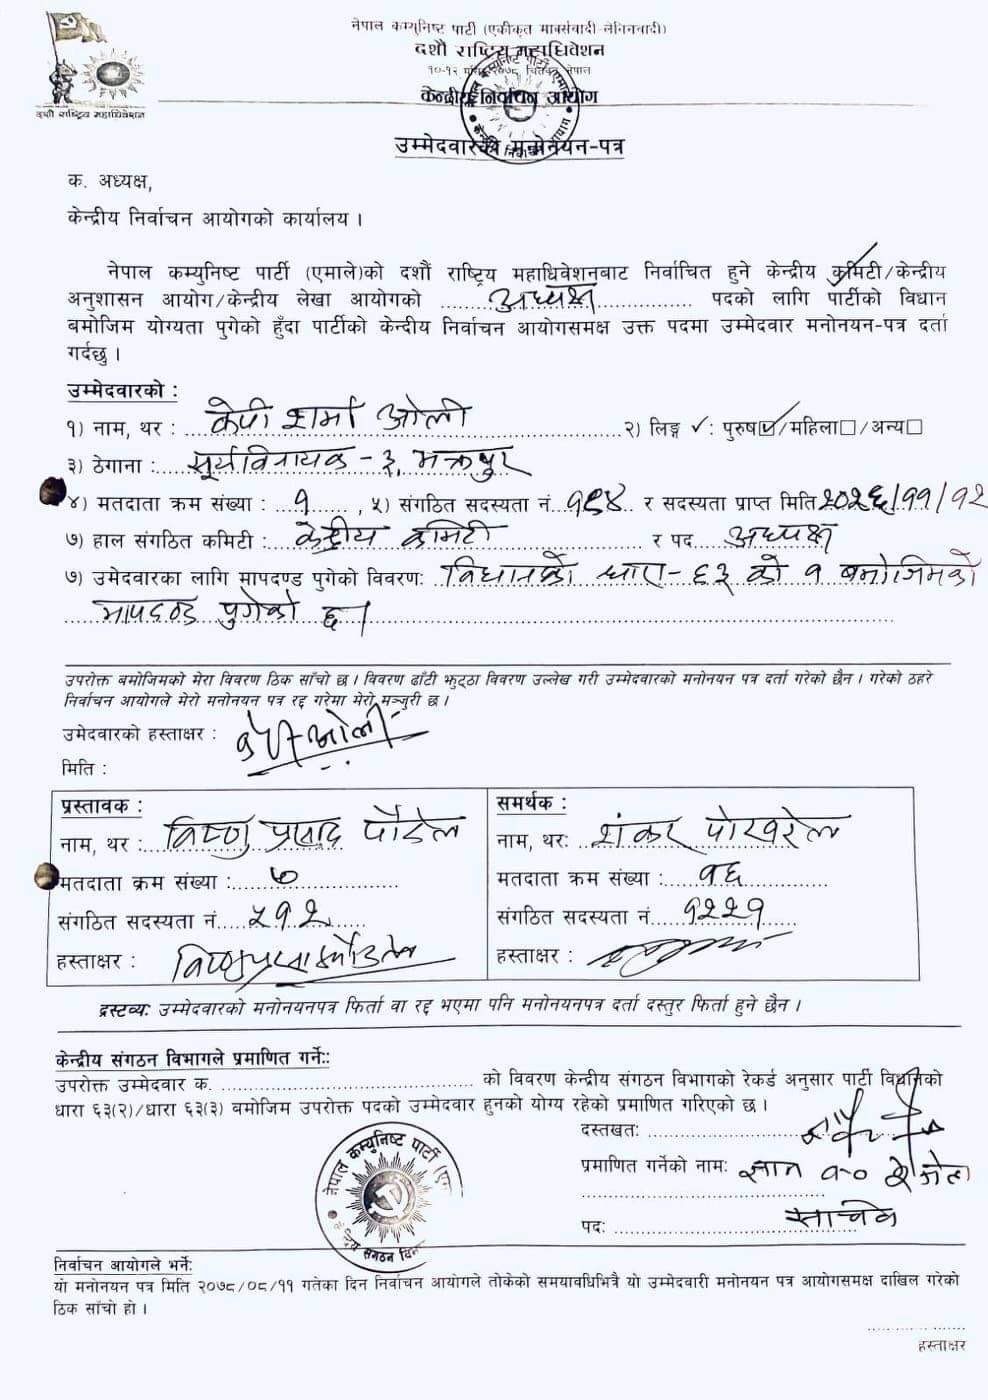 नेपाल कम्युनिष्ट पार्टी (एकीकृत मार्क्सवादी-लेनिनवादी)
दशौं राष्ट्रिय महाधिवेशन
१०-१२ २०७८, चितवन, नेपाल
केन्द्रीय निर्वाचन आयोग
दशौं राष्ट्रिय महाधिवेशन
उम्मेदवारको मनोनयन-पत्र
क. अध्यक्ष,
केन्द्रीय निर्वाचन आयोगको कार्यालय ।
नेपाल कम्युनिष्ट पार्टी (एमाले)को दशौं राष्ट्रिय महाधिवेशनबाट निर्वाचित हुने केन्द्रीय कमिटी/केन्द्रीय
अनुशासन आयोग/केन्द्रीय लेखा आयोगको अध्यक्ष पदको लागि पार्टीको विधान
बमोजिम योग्यता पुगेको हुँदा पार्टीको केन्दीय निर्वाचन आयोगसमक्ष उक्त पदमा उम्मेदवार मनोनयन-पत्र दर्ता
गर्दछु ।
उम्मेदवारको :
१) नाम, थर : केपी शर्मा ओली २) लिङ्ग ✓: पुरुष☑/महिला□/अन्य□
३) ठेगाना : सूर्यविनायक - ३, भक्तपुर
४) मतदाता क्रम संख्या : १ , ५) संगठित सदस्यता नं १९४ र सदस्यता प्राप्त मिति २०२६/११/१२
७) हाल संगठित कमिटी : केन्द्रीय कमिटी र पद अध्यक्ष
७) उमेदवारका लागि मापदण्ड पुगेको विवरण: विधानको धारा - ६३ को १ बमोजिमको
मापदण्ड पुगेको छ ।
उपरोक्त बमोजिमको मेरा विवरण ठिक साँचो छ । विवरण ढाँटी झुट्ठा विवरण उल्लेख गरी उम्मेदवारको मनोनयन पत्र दर्ता गरेको छैन । गरेको ठहरे
निर्वाचन आयोगले मेरो मनोनयन पत्र रद्द गरेमा मेरो मञ्जुरी छ ।
उमेदवारको हस्ताक्षर : केपी ओली
मिति :
प्रस्तावक :
नाम, थर : विष्णु प्रसाद पौडेल
मतदाता क्रम संख्या : ७
संगठित सदस्यता नं. ५१२
हस्ताक्षर : विष्णुप्रसाद पौडेल
समर्थक :
नाम, थर: शंकर पोखरेल
मतदाता क्रम संख्या : १६
संगठित सदस्यता नं. १२२१
हस्ताक्षर :
द्रस्टव्य: उम्मेदवारको मनोनयनपत्र फिर्ता वा रद्द भएमा पनि मनोनयनपत्र दर्ता दस्तुर फिर्ता हुने छैन ।
केन्द्रीय संगठन विभागले प्रमाणित गर्ने::
उपरोक्त उम्मेदवार क. को विवरण केन्द्रीय संगठन विभागको रेकर्ड अनुसार पार्टी विधानको
धारा ६३(२)/धारा ६३(३) बमोजिम उपरोक्त पदको उम्मेदवार हुनको योग्य रहेको प्रमाणित गरिएको छ ।
दस्तखत:
प्रमाणित गर्नेको नाम:
पद:
नेपाल कम्युनिष्ट पार्टी
संगठन
निर्वाचन आयोगले भर्ने:
यो मनोनयन पत्र मिति २०७८/०८/११ गतेका दिन निर्वाचन आयोगले तोकेको समयावधिभित्रै यो उम्मेदवारी मनोनयन पत्र आयोगसमक्ष दाखिल गरेको
ठिक साँचो हो ।
हस्ताक्षर